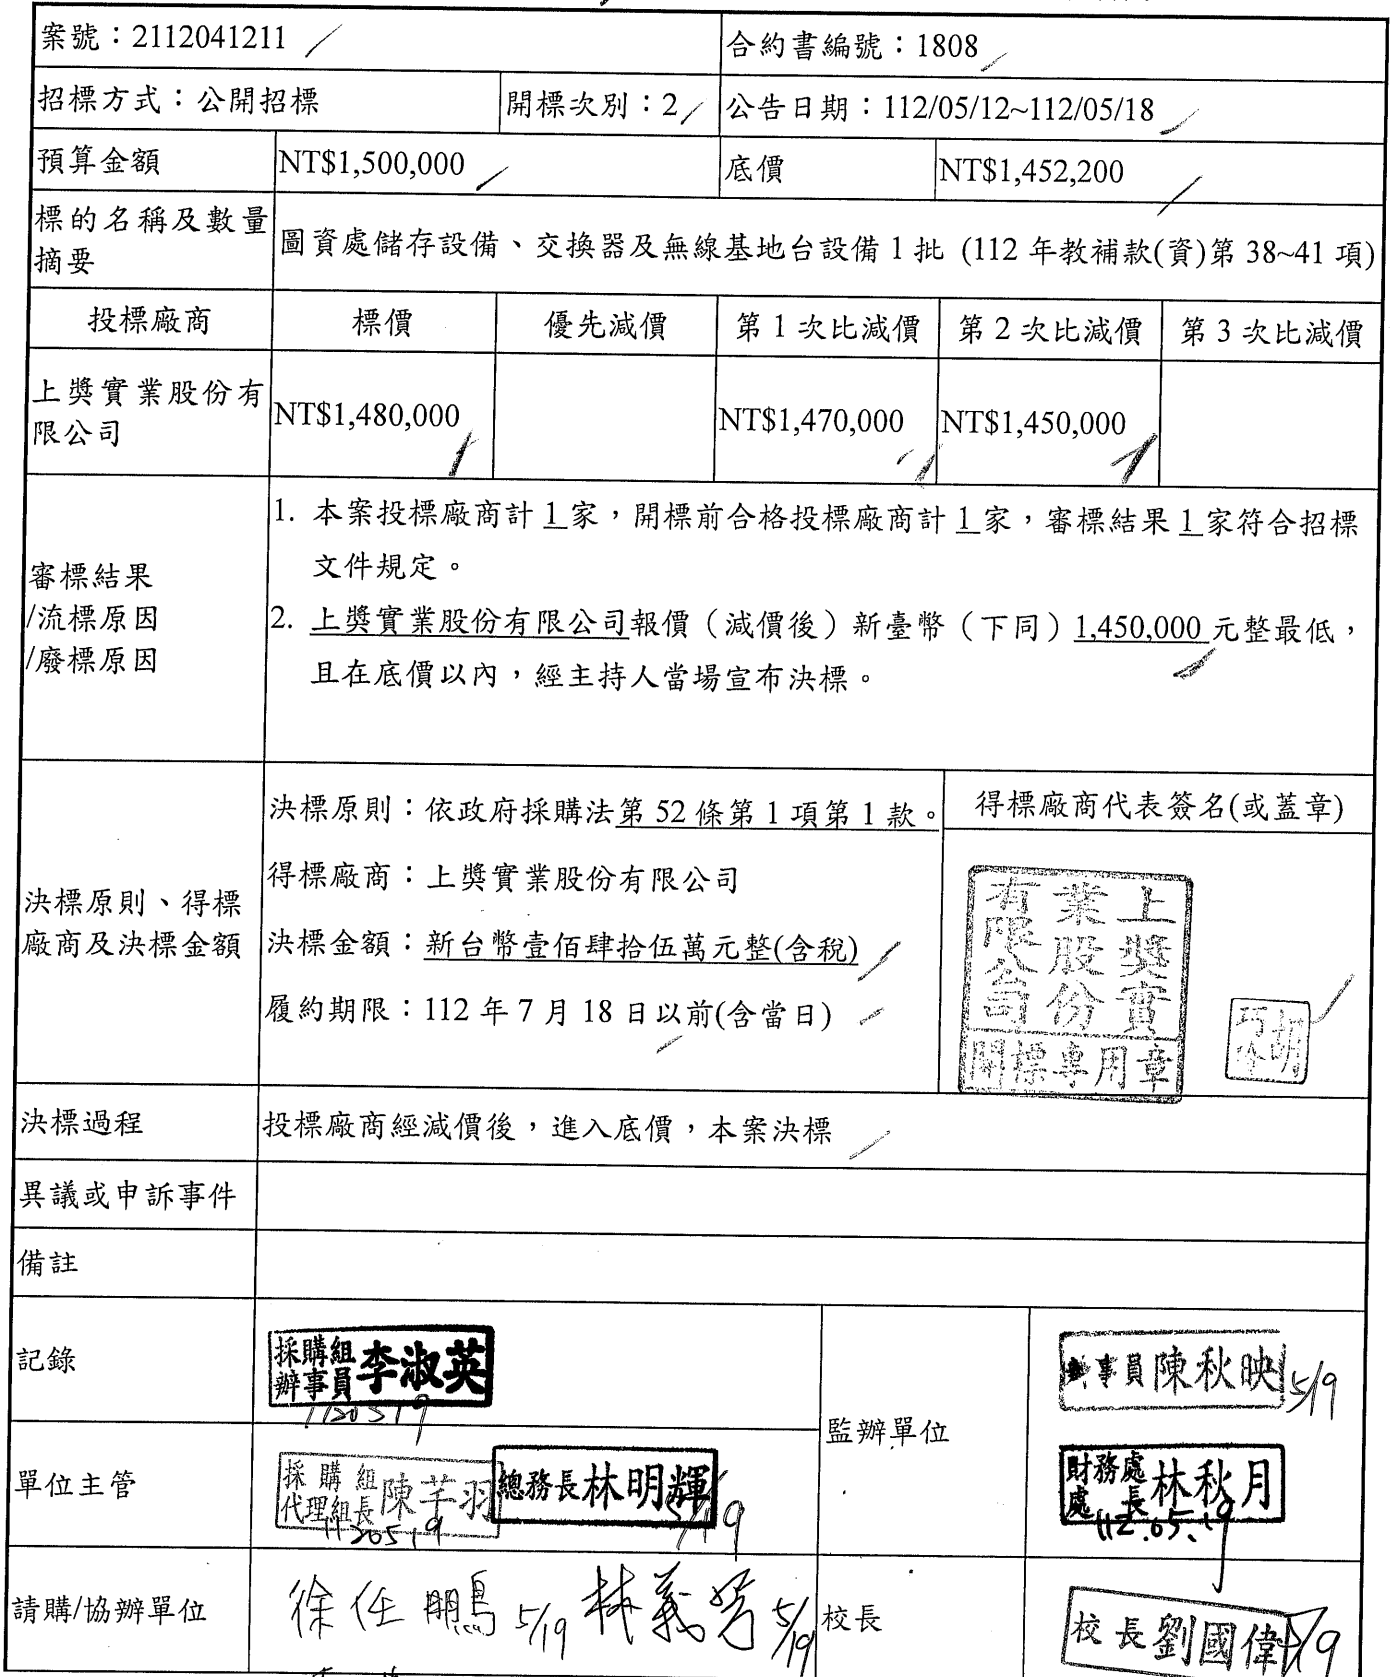 案號：2112041211
合約書編號：1808
招標方式：公開招標
開標次別：2
公告日期：112/05/12~112/05/18
預算金額
NT$1,500,000
底價
NT$1,452,200
標的名稱及數量
摘要
圖資處儲存設備、交換器及無線基地台設備1批 (112年教補款(資)第38~41項)
投標廠商
標價
優先減價
第1次比減價
第2次比減價
第3次比減價
上獎實業股份有
限公司
NT$1,480,000
NT$1,470,000
NT$1,450,000
審標結果
/流標原因
/廢標原因
1. 本案投標廠商計1家，開標前合格投標廠商計1家，審標結果1家符合招標
文件規定。
2. 上獎實業股份有限公司報價（減價後）新臺幣（下同）1,450,000元整最低，
且在底價以內，經主持人當場宣布決標。
決標原則、得標
廠商及決標金額
決標原則：依政府採購法第52條第1項第1款。
得標廠商：上獎實業股份有限公司
決標金額：新台幣壹佰肆拾伍萬元整(含稅)
履約期限：112年7月18日以前(含當日)
得標廠商代表簽名(或蓋章)
上獎實
業股份
有限公司
開標專用章
決標過程
投標廠商經減價後，進入底價，本案決標
異議或申訴事件
備註
記錄
採購組
辦事員李淑英
1120519
監辦單位
事員陳秋映
5/19
單位主管
採購組
代理組長陳芊羽
1120519
總務長林明輝
5/19
財務處
處長林秋月
112.05.19
請購/協辦單位
徐任鵬 5/19
林義 5/19
校長
校長劉國偉
5/19